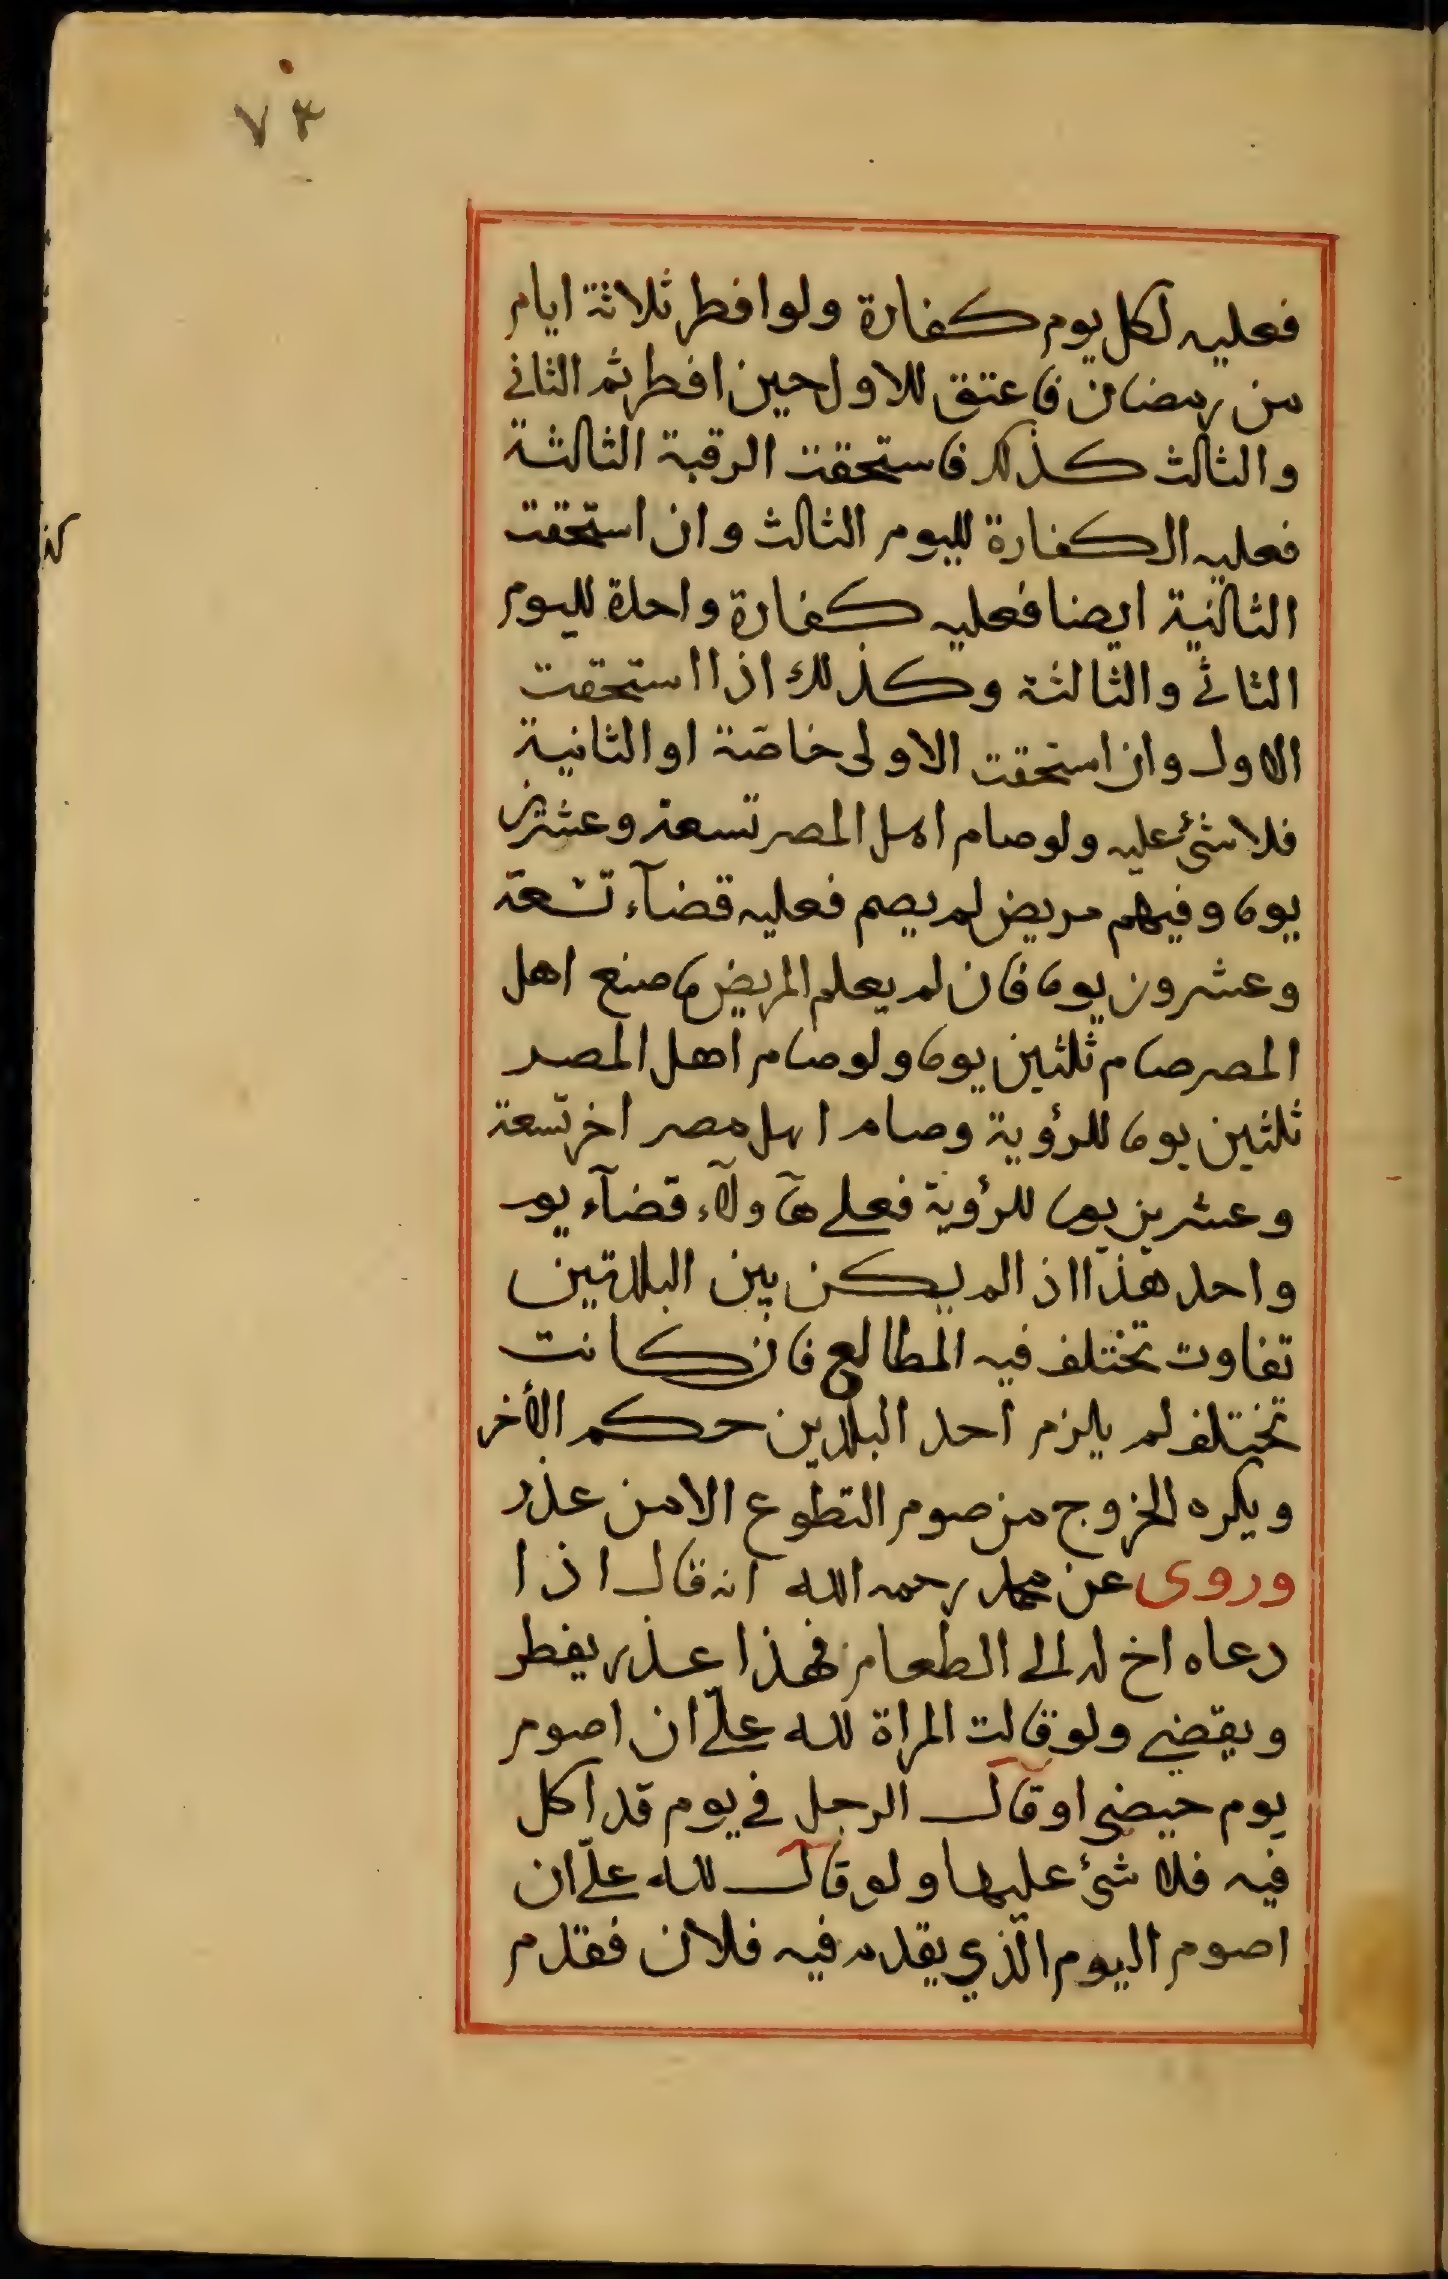 ٧٣
فعليه لكل يوم كفارة ولو افطر ثلاثة ايام
من رمضان فاعتق للاول حين افطر ثم الثاني
والثالث كذلك فاستحقت الرقبة الثالثة
فعليه الكفارة لليوم الثالث وان استحقت
الثانية ايضا فعليه كفارة واحدة لليوم
الثاني والثالثة وكذلك اذا استحقت
الاول وان استحقت الاولى خاصة او الثانية
فلا شئ عليه ولو صام اهل المصر تسعة وعشرين
يوما وفيهم مريض لم يصم فعليه قضآء تسعة
وعشرون يوما فان لم يعلم المريض ما صنع اهل
المصر صام ثلثين يوما ولو صام اهل المصر
ثلثين يوما للرؤية وصام اهل مصر اخر تسعة
وعشرين يوما للرؤية فعلى هآولآء قضآء يوم
واحد هذا اذا لم يكن بين البلدتين
تفاوت تختلف فيه المطالع فان كانت
تختلف لم يلزم احد البلدين حكم الأخر
ويكره الخروج من صوم التطوع الا من عذر
وروى عن محمد رحمه الله انه قال اذا
دعاه اخ له الى الطعام فهذا عذر يفطر
ويقضي ولو قالت المراة لله علىّ ان اصوم
يوم حيضي او قال الرجل في يوم قد اكل
فيه فلا شئ عليهما ولو قال لله علىّ ان
اصوم اليوم الّذي يقدم فيه فلان فقدم